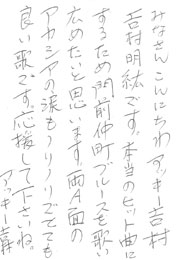 みなさんこんにちわ アッキー吉村
吉村明紘です。本当のヒット曲に
するため門前仲町ブルースを歌い
広めたいと思います。両A面の
アカシアの涙もノリノリでとても
良い歌です。応援して下さいね。
アッキー吉村